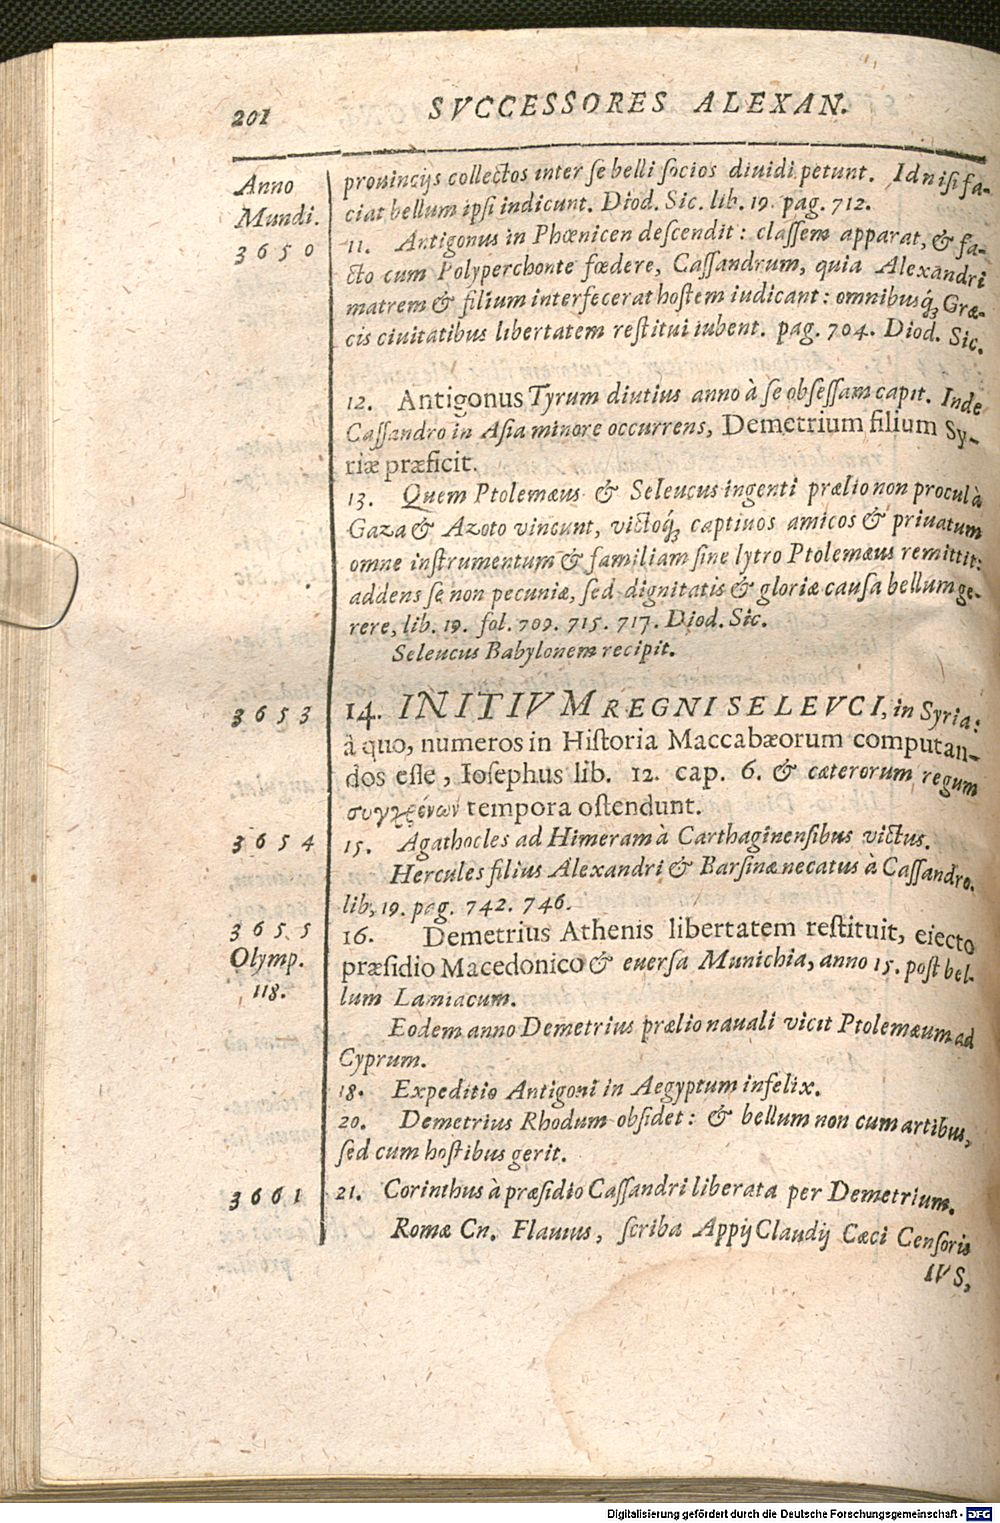 201
SVCCESSORES ALEXAN.
Anno
Mundi.
prouincijs collectos inter se belli socios diuidi petunt. Id nisi fa-
ciat bellum ipsi indicunt. Diod. Sic. lib. 19. pag. 712.
3650
11. Antigonus in Phœnicen descendit: classem apparat, & fa-
cto cum Polyperchonte fœdere, Cassandrum, quia Alexandri
matrem & filium interfecerat hostem iudicant: omnibusq́ꝫ Græ-
cis ciuitatibus libertatem restitui iubent. pag. 704. Diod. Sic.
12. Antigonus Tyrum diutius anno à se obsessam capit. Inde
Cassandro in Asia minore occurrens, Demetrium filium Sy-
riæ præficit.
13. Quem Ptolemæus & Seleucus ingenti prælio non procul à
Gaza & Azoto vincunt, victoq́ꝫ captiuos amicos & priuatum
omne instrumentum & familiam sine lytro Ptolemæus remittit:
addens se non pecuniæ, sed dignitatis & gloriæ causa bellum ge-
rere, lib. 19. fol. 709. 715. 717. Diod. Sic.
Seleucus Babylonem recipit.
3653
14. INITIVM REGNI SELEVCI, in Syria:
à quo, numeros in Historia Maccabæorum computan-
dos esse, Iosephus lib. 12. cap. 6. & cæterorum regum
συγχρόνων tempora ostendunt.
3654
15. Agathocles ad Himeram à Carthaginensibus victus.
Hercules filius Alexandri & Barsinæ necatus à Cassandro.
lib. 19. pag. 742. 746.
3655
Olymp.
118.
16. Demetrius Athenis libertatem restituit, eiecto
præsidio Macedonico & euersa Munichia, anno 15. post bel-
lum Lamiacum.
Eodem anno Demetrius prælio nauali vicit Ptolemæum ad
Cyprum.
18. Expeditio Antigoni in Aegyptum infelix.
20. Demetrius Rhodum obsidet: & bellum non cum artibus,
sed cum hostibus gerit.
3661
21. Corinthus à præsidio Cassandri liberata per Demetrium.
Romæ Cn. Flauius, scriba Appij Claudij Cæci Censoris
IVS,
Digitalisierung gefördert durch die Deutsche Forschungsgemeinschaft - DFG